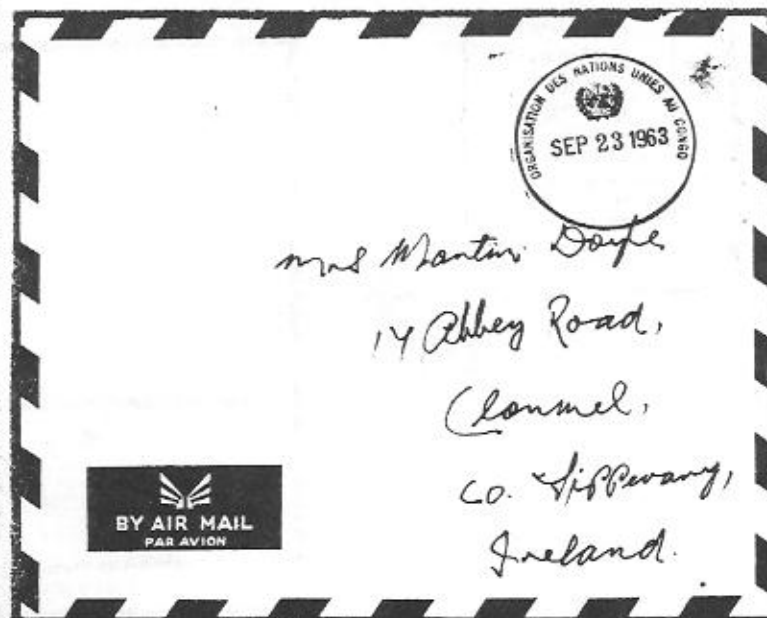 ORGANISATION DES NATIONS UNIES AU CONGO
SEP 23 1963
Mrs Martin Doyle
14 Abbey Road,
Clonmel,
Co. Tipperary,
Ireland.
BY AIR MAIL
PAR AVION